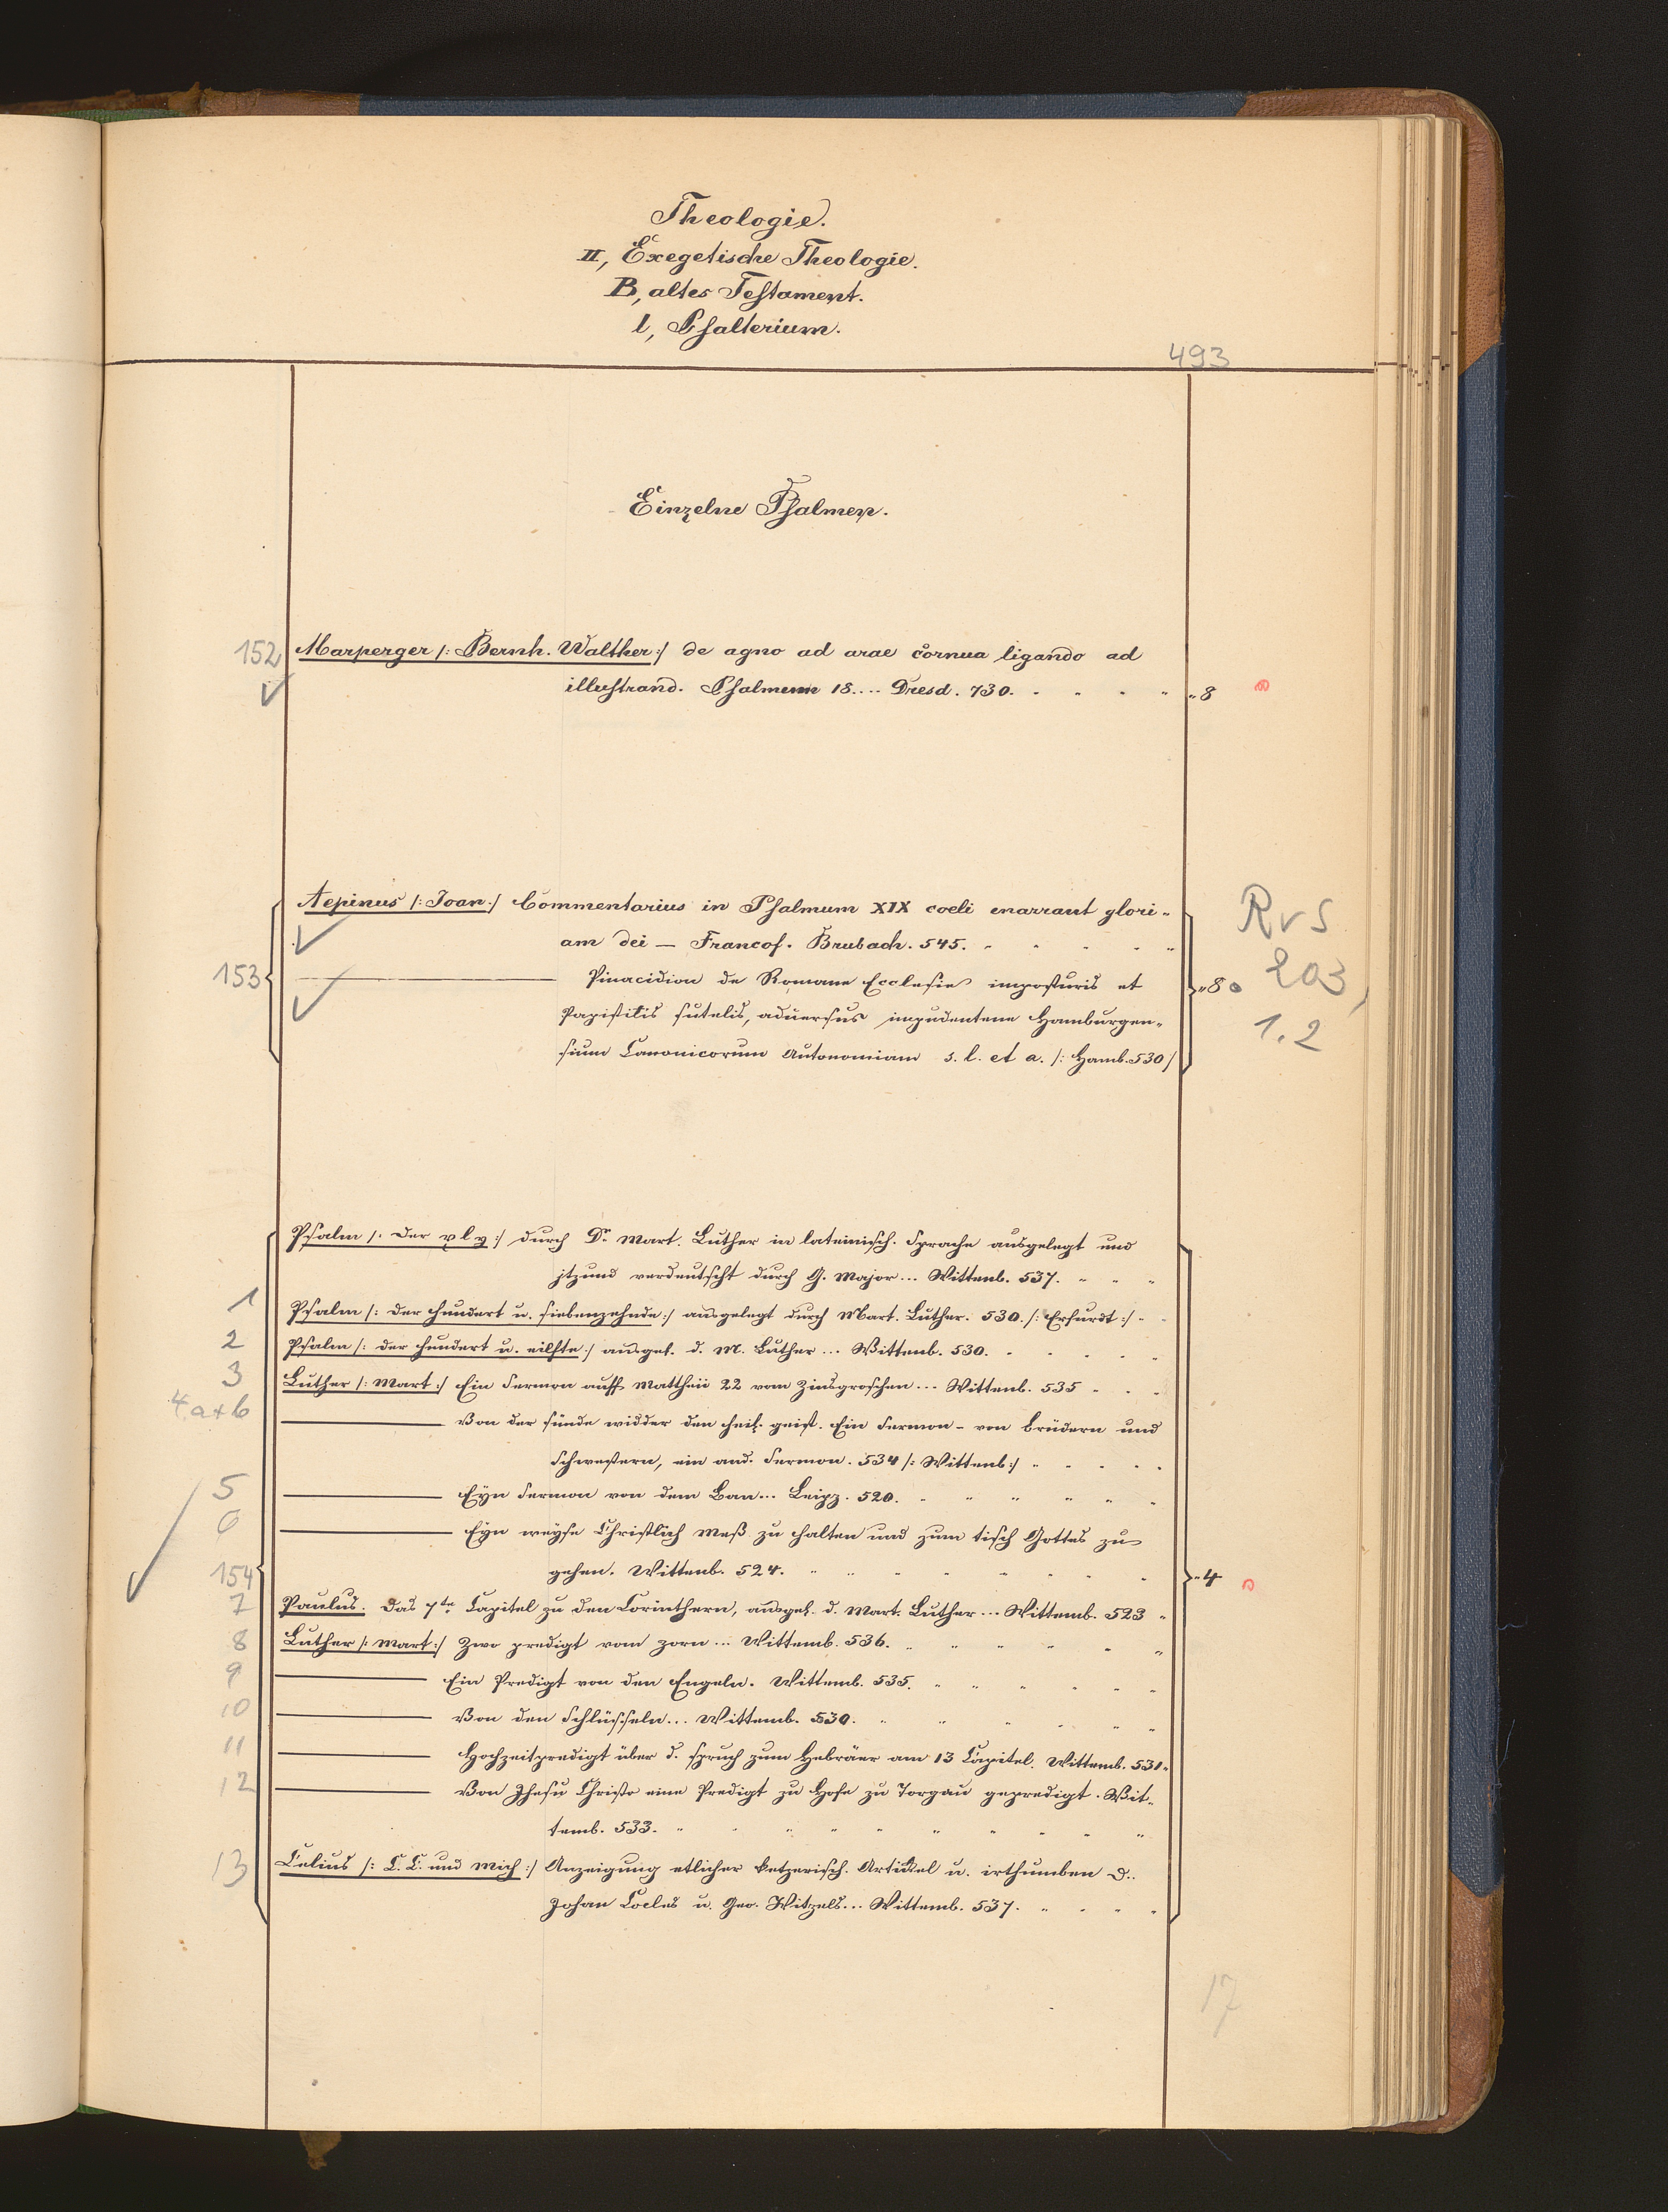 Theologie.
II, Exegetische Theologie.
B, altes Testament.
l, Psalterium.
493
Einzelne Psalmen.
152 Marperger /: Bernh. Walther :/ de agno ad arae cornua ligando ad
illustrand. Psalmum 18.... Dresd. 730. " 8
Aepinus /: Joan :/ Commentarius in Psalmum XIX coeli enarrant glori-
am dei — Francof. Brubach. 545.
R v S
153 ——— Pinacidion de Romane Ecclesie imposturis et " 8 203,
Papistilis sutelis, aduersus impudentene Hamburgen-
1.2
sium Canonicorum Autonomiam s. l. et a. /: Hamb. 530 /
Psalm /: der xlv :/ durch Dr. Mart. Luther in lateinisch. Sprache ausgelegt und
jtzund verdeutscht durch G. Major... Wittenb. 537.
1 Psalm /: der hundert u. siebenzehnde :/ ausgelegt durch Mart. Luther. 530. /: Erfurdt :/
2 Psalm /: der hundert u. eilfte :/ ausgel. d. M. Luther... Wittenb. 530.
3 Luther /: Mart :/ Ein Sermon auff Mattheii 22 vom Zinsgroschen... Wittenb. 535
4 a+b ——— Von der sünde widder den heil. geist. Ein Sermon - von brüdern und
schwestern, ein and. Sermon. 534 /: Wittenb :/
5 ——— Eyn Sermon von dem Ban... Leipz. 520.
6 ——— Eyn weyse Christlich Meß zu halten und zum tisch Gottes zu
154 gehen. Wittenb. 524. " 4
7 Paulus. Das 7te Capitel zu den Corinthern, ausgel. d. Mart. Luther... Wittemb. 523
8 Luther /: Mart :/ Zwo predigt vom zorn... Wittemb. 536.
9 ——— Ein Predigt von den Engeln. Wittemb. 535.
10 ——— Von den Schlüsseln... Wittemb. 530.
11 ——— Hochzeitpredigt über d. spruch zum Hebräer am 13 Capitel. Wittemb. 531.
12 ——— Von Jhesu Christo eine Predigt zu Hofe zu Torgau gepredigt. Wit-
temb. 533.
13 Celius /: C. C. und Mich :/ Anzeigung etlicher ketzerisch. Artickel u. irthumben D.
Johan Cocles u. Geo. Witzels... Wittemb. 537.
17